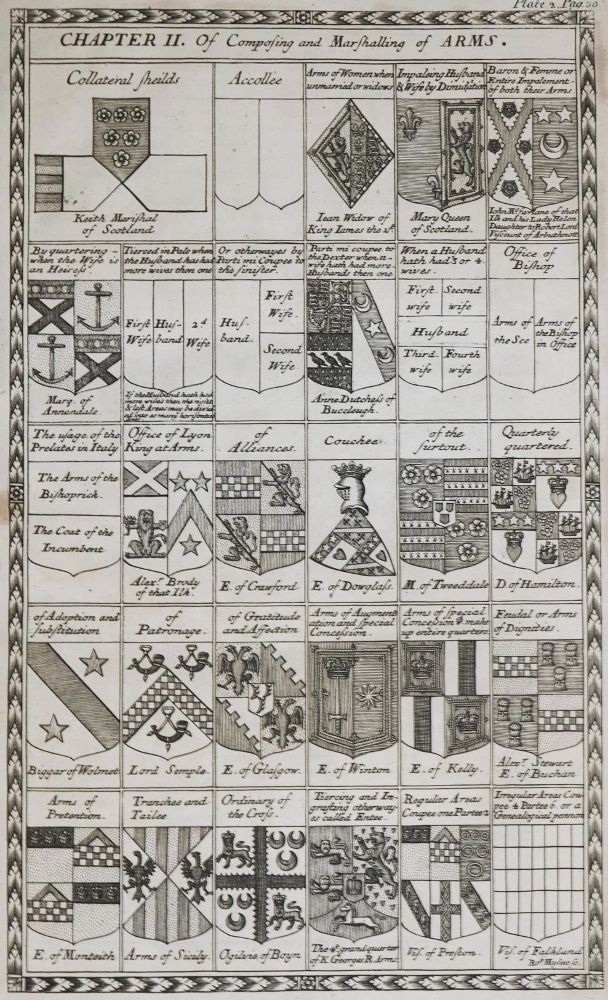 Plate 2. Pag. 30
CHAPTER II. Of Composing and Marshalling of ARMS.
Collateral sheilds
Keith Marishal
of Scotland
Accollee
Arms of Women when
unmarried or widows
Iean Widow of
King Iames the 1st.
Impaleing Husband
& Wife by Dimidiation
Mary Queen
of Scotland.
Baron & Femme or
Entire Impalement
of both their Arms
Iohn Mcfarlane of that
Ilk and his Lady Helen
Daughter to Robert Lord
Viscount of Arbuthnott
By quartering
when the Wife is
an Heiress
Marq. of
Annandale.
Tierced in Pale when
the Husband has had
more wives then one
First Hus- 2d
Wife band Wife
If the Husband hath had
more wives then the right
& left Areas may be divid
ed into as many horisontal
Or otherwayes by
Parti mi Coupee to
the sinister.
Hus-
band.
First
Wife
Second
Wife
Parti mi coupee to
the Dexter when a
wife hath had more
Husbands then one
Anne Dutchess of
Buccleugh.
When a Husband
hath had 3 or 4
wives.
First Second
wife wife
Husband
Third Fourth
wife wife
Office of
Bishop
Arms of
the See
Arms of
the Bishop
in Office
The usage of the
Prelates in Italy
The Arms of the
Bishoprick.
The Coat of the
Incumbent
Office of Lyon
King at Arms.
Alexr. Brody
of that Ilk.
of
Alliances.
E. of Crawford
Couchee
E. of Dowglass.
of the
surtout.
M. of Tweeddale
Quarterly
quartered.
D. of Hamilton.
of Adoption and
substitution
Biggar of Wolmet
of
Patronage.
Lord Semple.
of Gratitude
and Affection
E. of Glasgow.
Arms of Augment
ation and special
Concession.
E. of Winton
Arms of special
Concession & make
up entire quarters.
E. of Kelly.
Feudal or Arms
of Dignitees.
Alexr. Stewart
E. of Buchan
Arms of
Pretention.
E. of Monteith
Tranchee and
Tailee
Arms of Sicily.
Ordinary of
the Cross.
Ogilvie of Boyn
Tiercing and In-
grafting otherway-
es called Entee.
The 4th. grand quarter
of K. Georges R. Arms.
Regular Areas
Coupee one Partee 2
Vis. of Preston.
Irregular Areas Cou
pee 4 Partee 6. or a
Genealogical pennon
Vis. of Falkland